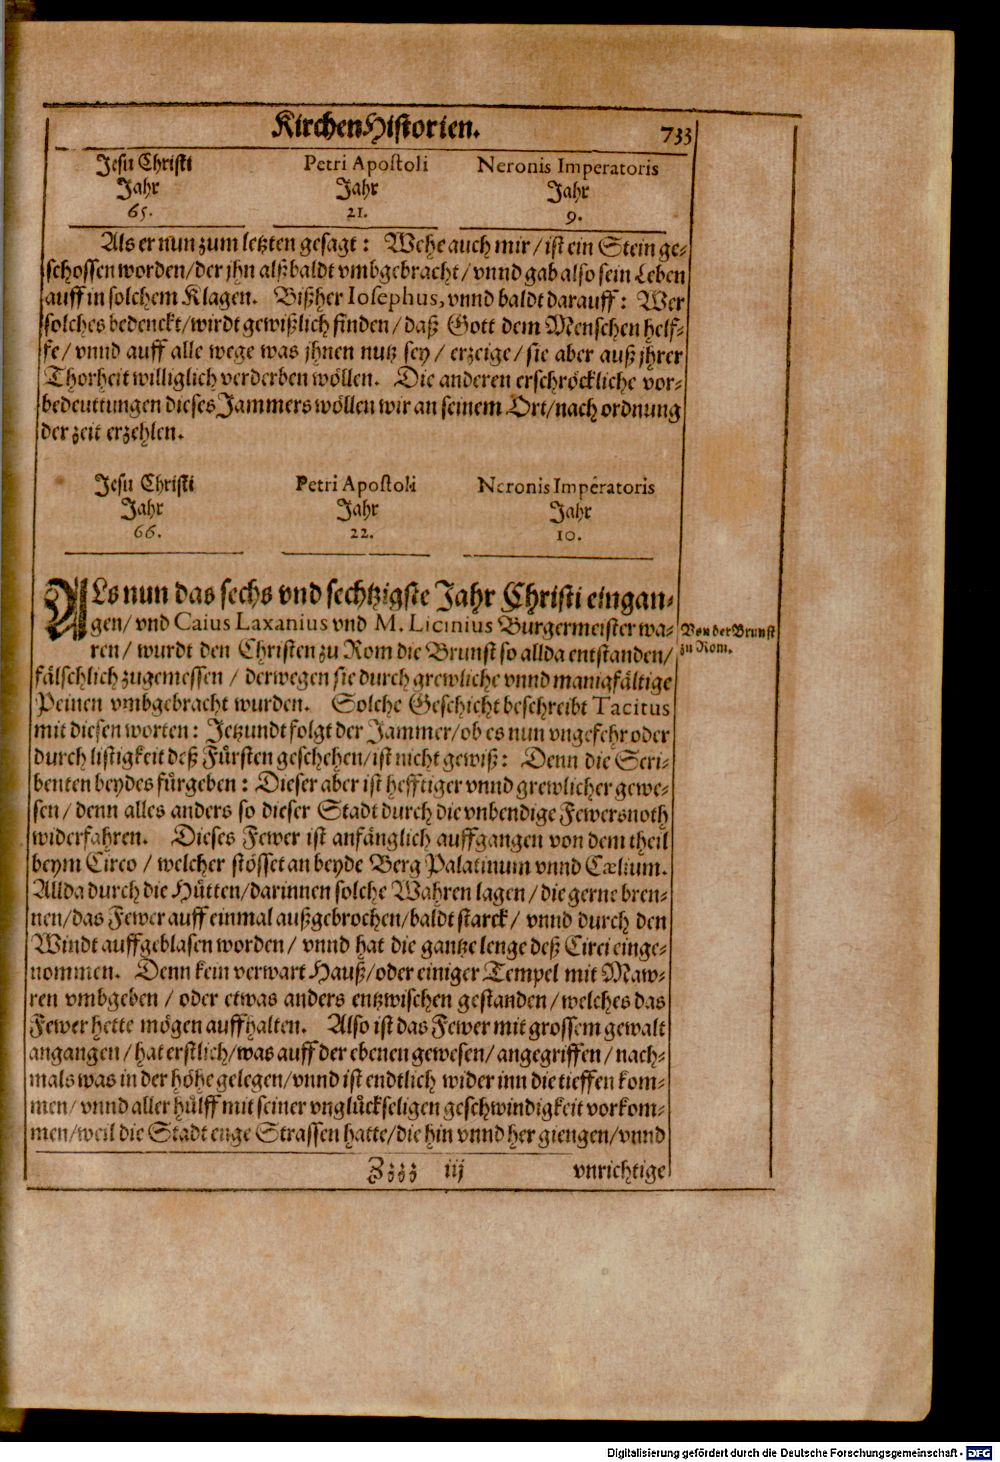 KirchenHistorien. 733
Jesu Christi Petri Apostoli Neronis Imperatoris
Jahr Jahr Jahr
65. 21. 9.
Als er nun zum letzten gesagt: Wehe auch mir/ ist ein Stein ge-
schossen worden/ der jhn alßbaldt vmbgebracht/ vnnd gab also sein Leben
auff in solchem Klagen. Bißher Iosephus, vnnd baldt darauff: Wer
solches bedenckt/ wirdt gewißlich finden/ daß Gott dem Menschen helf-
fe/ vnnd auff alle wege was jhnen nutz sey/ erzeige/ sie aber auß jhrer
Thorheit williglich verderben wöllen. Die anderen erschröckliche vor-
bedeuttungen dieses Jammers wöllen wir an seinem Ort/ nach ordnung
der zeit erzehlen.
Jesu Christi Petri Apostoli Neronis Imperatoris
Jahr Jahr Jahr
66. 22. 10.
ALs nun das sechs vnd sechtzigste Jahr Christi eingan-
gen/ vnd Caius Laxanius vnd M. Licinius Burgermeister wa-
ren/ wurdt den Christen zu Rom die Brunst so allda entstanden/
Von der Brunst
zu Rom.
fälschlich zugemessen/ derwegen sie durch grewliche vnnd manigfältige
Peinen vmbgebracht wurden. Solche Geschicht beschreibt Tacitus
mit diesen worten: Jetzundt folgt der Jammer/ ob es nun vngefehr oder
durch listigkeit deß Fürsten geschehen/ ist nicht gewiß: Denn die Scri-
benten beydes fürgeben: Dieser aber ist hefftiger vnnd grewlicher gewe-
sen/ denn alles anders so dieser Stadt durch die vnbendige Fewersnoth
widerfahren. Dieses Fewer ist anfänglich auffgangen von dem theil
beym Circo/ welcher stösset an beyde Berg Palatinum vnnd Cælium.
Allda durch die Hütten/ darinnen solche Wahren lagen/ die gerne bren-
nen/ das Fewer auff einmal außgebrochen/ baldt starck/ vnnd durch den
Windt auffgeblasen worden/ vnnd hat die gantze lenge deß Circi einge-
nommen. Denn kein verwart Hauß/ oder einiger Tempel mit Maw-
ren vmbgeben/ oder etwas anders entzwischen gestanden/ welches das
Fewer hette mögen auffhalten. Also ist das Fewer mit grossem gewalt
angangen/ hat erstlich/ was auff der ebenen gewesen/ angegriffen/ nach-
mals was in der höhe gelegen/ vnnd ist endtlich wider inn die tieffen kom-
men/ vnnd aller hülff mit seiner vnglückseligen geschwindigkeit vorkom-
men/ weil die Stadt enge Strassen hatte/ die hin vnnd her giengen/ vnnd
Zzzz iij vnrichtige
Digitalisierung gefördert durch die Deutsche Forschungsgemeinschaft - DFG